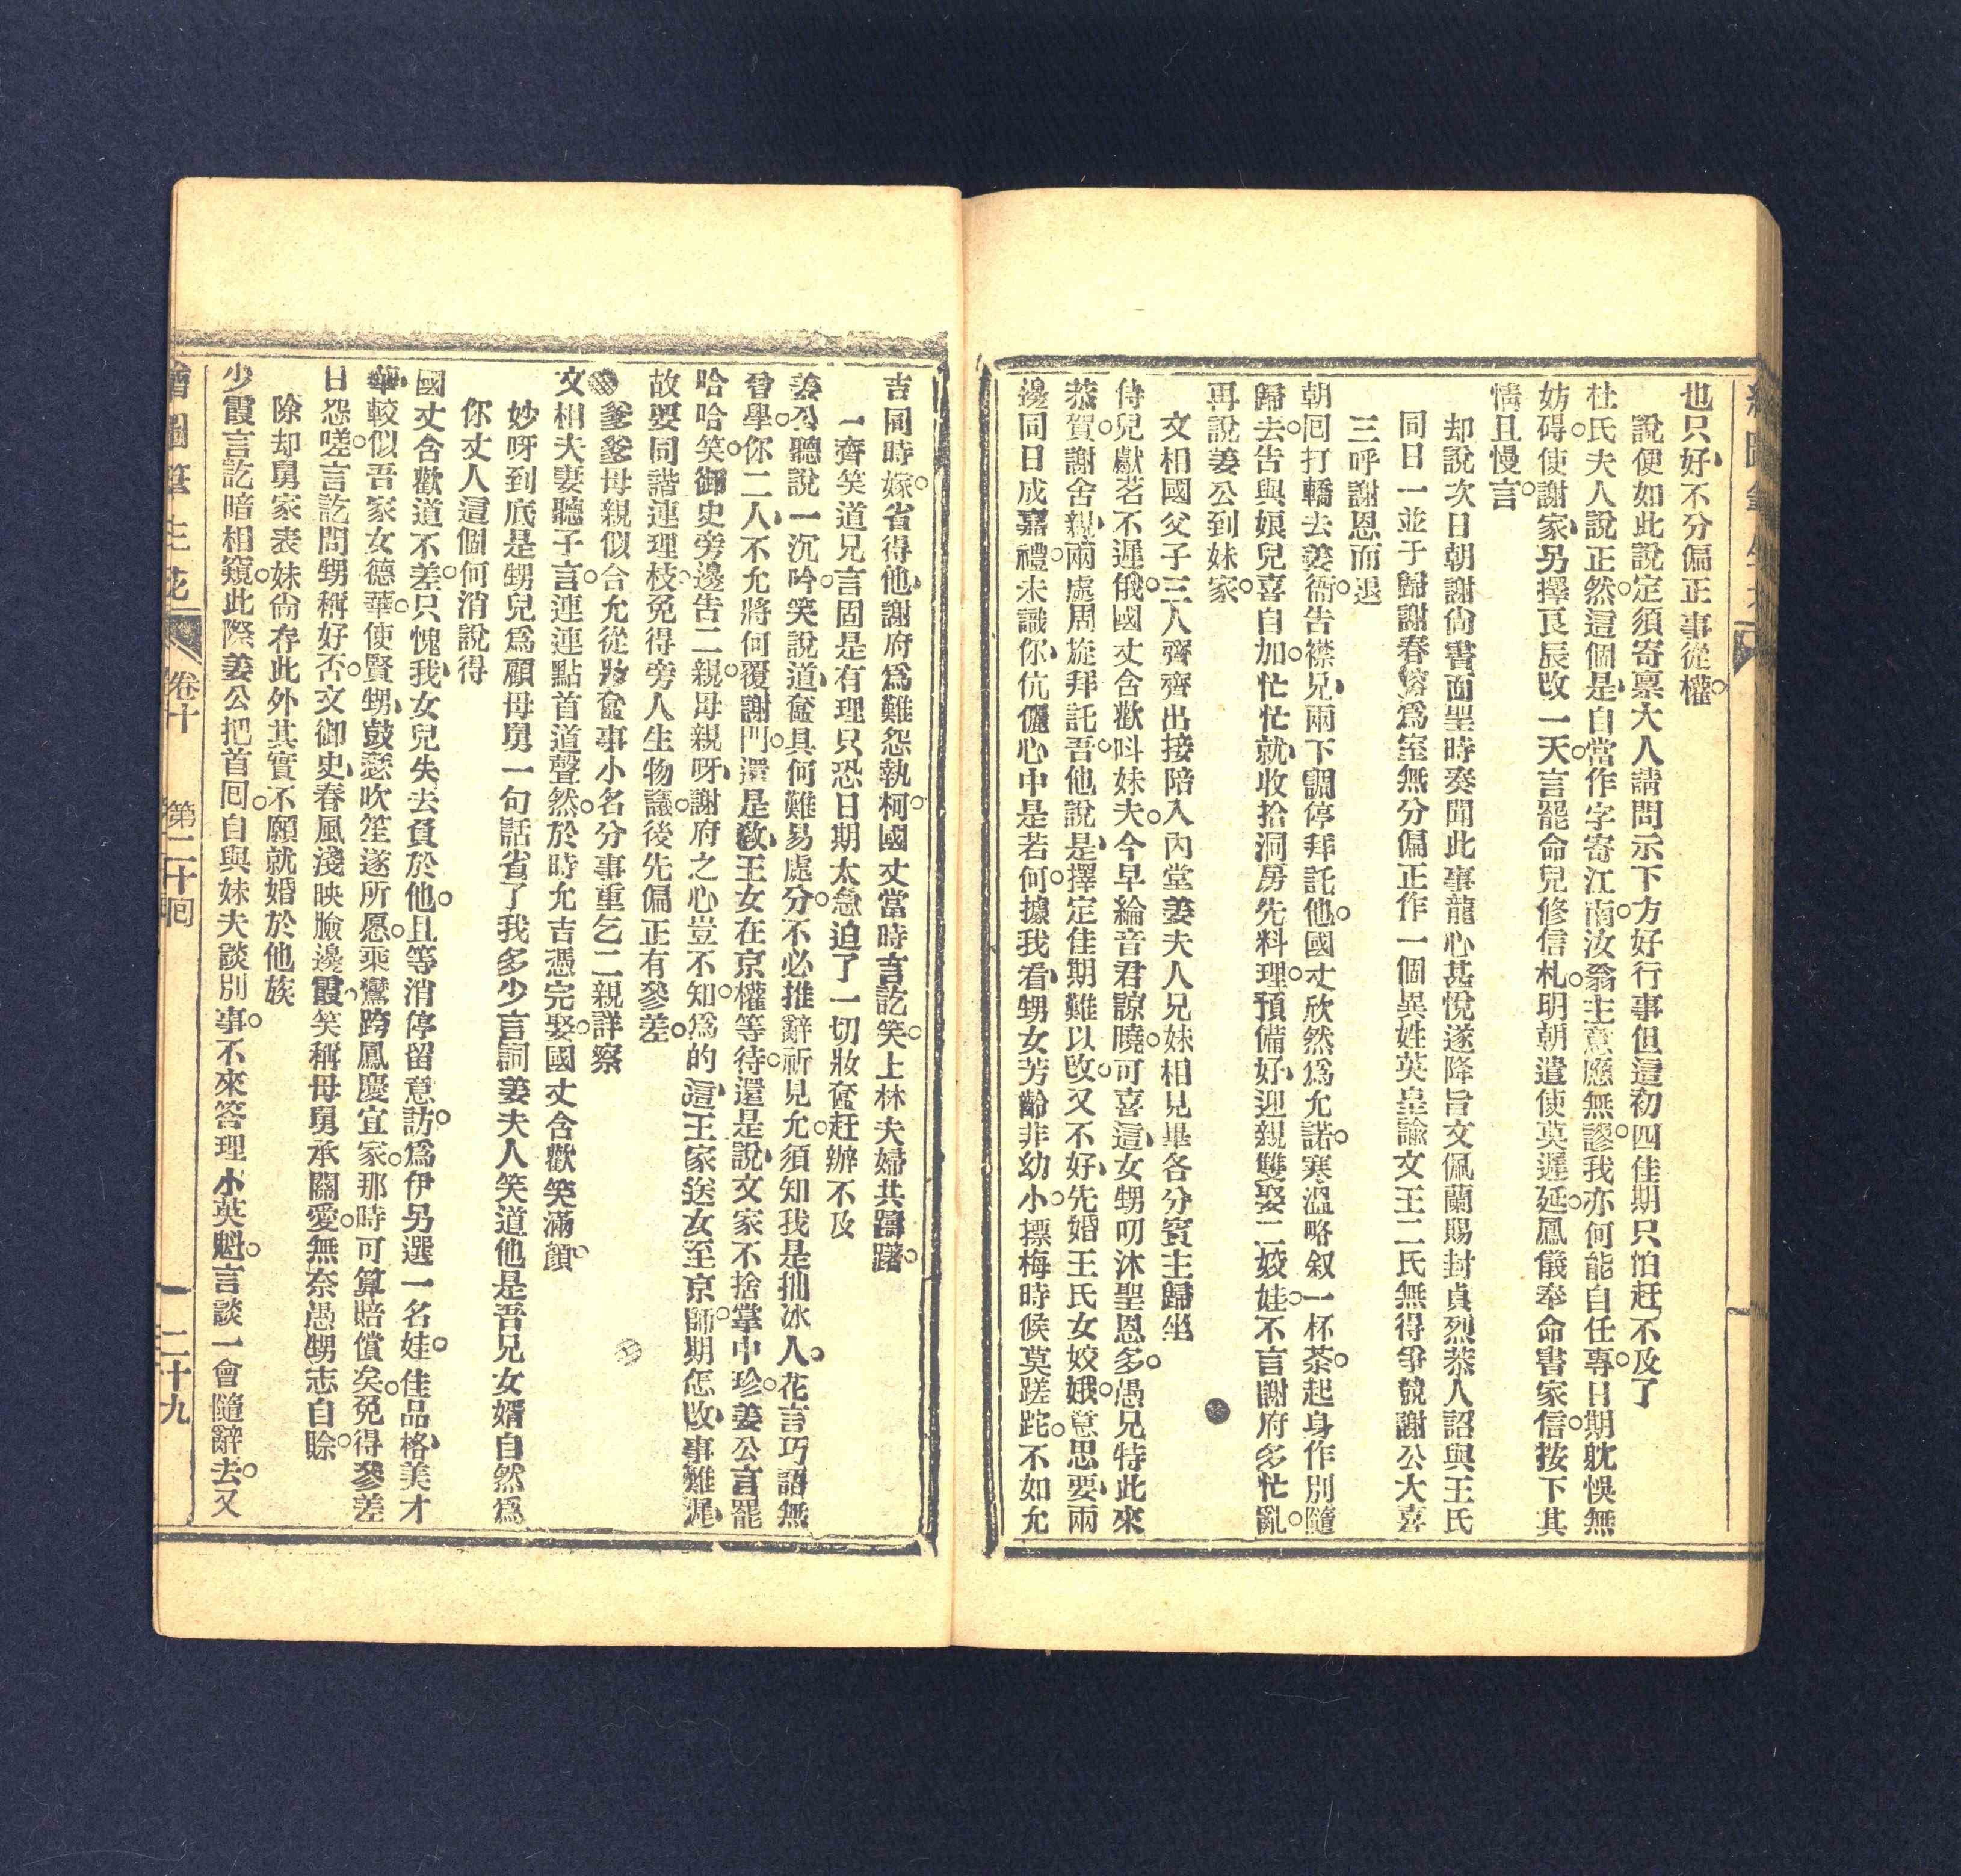 也只好不分偏正事從權。
說便如此說定須寄稟大人請問示下方好行事但這初四佳期只怕赶不及了
杜氏夫人說正然這個是自當作字寄江南。汝翁主意應無謬。我亦何能自任專。日期躭悞無
妨碍。使謝家另擇良辰改一天。言罷命兒修信札。明朝遣使莫遲延。鳳儀奉命書家信。按下其
情且慢言。
却說次日朝謝尙書面聖時奏聞此事龍心甚悅遂降旨文佩蘭賜封貞烈恭人詔與王氏
同日一並于歸謝春榕爲室無分偏正作一個異姓英皇諭文王二氏無得爭競謝公大喜
三呼謝恩而退
朝囘打轎去姜衙。告襟兄兩下調停拜託他。國丈欣然爲允諾。寒溫略叙一杯茶。起身作別隨
歸去。告與娘兒喜自加。忙忙就收拾洞房先料理。預備好迎親雙娶二姣娃。不言謝府多忙亂。
再說姜公到妹家。
文相國父子三人齊齊出接陪入內堂姜夫人兄妹相見畢各分賓主歸坐
侍兒獻茗不遲俄。國丈含歡呌妹夫。今早綸音君諒曉。可喜這女甥叨沐聖恩多。愚兄特此來
恭賀。謝舍親兩處周旋拜託吾。他說是擇定佳期難以改。又不好先婚王氏女姣娥。意思要兩
邊同日成嘉禮。未識你伉儷心中是若何。據我看甥女芳齡非幼小。摽梅時候莫蹉跎。不如允
吉同時嫁。省得他謝府爲難怨執柯。國丈當時言訖笑。上林夫婦共躊躇。
一齊笑道兄言固是有理只恐日期太急迫了一切妝奩赶辦不及
姜公聽說一沉吟。笑說道奩具何難易處分。不必推辭祈見允。須知我是拙冰人。花言巧語無
曾學。你二人不允將何覆謝門。還是敎王女在京權等待。還是說文家不捨掌中珍。姜公言罷
哈哈笑。御史旁邊告二親。母親呀謝府之心豈不知。爲的這王家送女至京師。期怎改事難遲。
故要同諧連理枝。免得旁人生物議。後先偏正有參差。
爹爹母親似合允從妝奩事小名分事重乞二親詳察
文相夫妻聽子言。連連點首道聲然。於時允吉憑完娶。國丈含歡笑滿顏。
妙呀到底是甥兒爲顧母舅一句話省了我多少言詞姜夫人笑道他是吾兄女婿自然爲
你丈人這個何消說得
國丈含歡道不差。只愧我女兒失去負於他。且等消停留意訪。爲伊另選一名娃。佳品格美才
華。較似吾家女德華。使賢甥鼓瑟吹笙遂所愿。乘鸞跨鳳慶宜家。那時可算賠償矣。免得參差
日怨嗟。言訖問甥稱好否。文御史春風淺映臉邊霞。笑稱母舅承關愛。無奈愚甥志自賖。
除却舅家表妹尙存此外其實不願就婚於他族
少霞言訖暗相窺。此際姜公把首囘。自與妹夫談別事。不來答理小英魁。言談一會隨辭去。又
繪圖筆生花 卷十 第二十囘 二十九